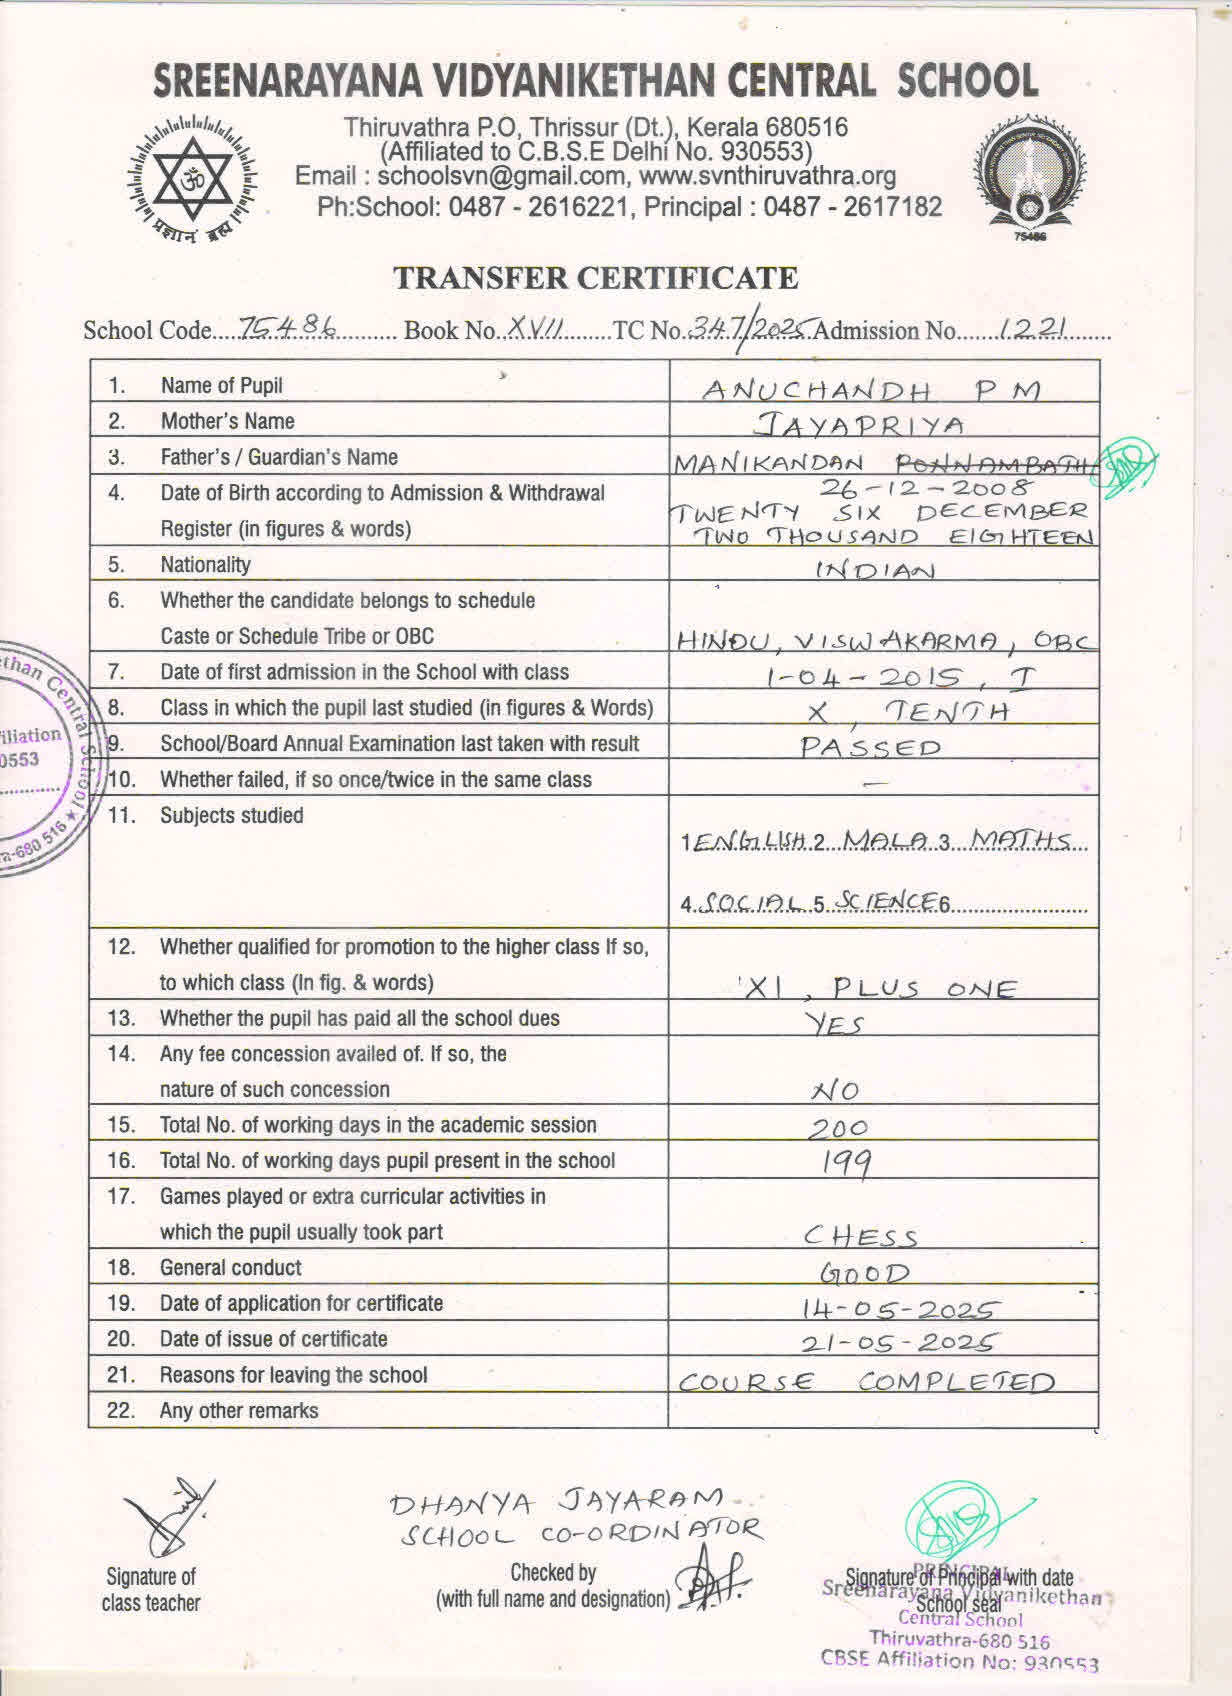 SREENARAYANA VIDYANIKETHAN CENTRAL SCHOOL
Thiruvathra P.O, Thrissur (Dt.), Kerala 680516
(Affiliated to C.B.S.E Delhi No. 930553)
Email : schoolsvn@gmail.com, www.svnthiruvathra.org
Ph:School: 0487 - 2616221, Principal : 0487 - 2617182
ॐ
प्रज्ञानं ब्रह्म
75486
TRANSFER CERTIFICATE
School Code....75486.......... Book No..XVII........TC No.347/2025Admission No.......1221........
1. Name of Pupil ANUCHANDH P M
2. Mother's Name JAYAPRIYA
3. Father's / Guardian's Name MANIKANDAN PONNAMBATH
4. Date of Birth according to Admission & Withdrawal 26-12-2008
Register (in figures & words) TWENTY SIX DECEMBER
TWO THOUSAND EIGHTEEN
5. Nationality INDIAN
6. Whether the candidate belongs to schedule
Caste or Schedule Tribe or OBC HINDU, VISWAKARMA, OBC
7. Date of first admission in the School with class 1-04-2015, I
8. Class in which the pupil last studied (in figures & Words) X, TENTH
9. School/Board Annual Examination last taken with result PASSED
10. Whether failed, if so once/twice in the same class —
11. Subjects studied
1 ENGLISH 2...MALA..3...MATHS...
4..SOCIAL..5..SCIENCE 6........................
12. Whether qualified for promotion to the higher class If so,
to which class (In fig. & words) XI, PLUS ONE
13. Whether the pupil has paid all the school dues YES
14. Any fee concession availed of. If so, the
nature of such concession NO
15. Total No. of working days in the academic session 200
16. Total No. of working days pupil present in the school 199
17. Games played or extra curricular activities in
which the pupil usually took part CHESS
18. General conduct GOOD
19. Date of application for certificate 14-05-2025
20. Date of issue of certificate 21-05-2025
21. Reasons for leaving the school COURSE COMPLETED
22. Any other remarks
ethan Central School ★
iliation
0553
ra-680 516
DHANYA JAYARAM
SCHOOL CO-ORDINATOR
Signature of
class teacher
Checked by
(with full name and designation)
Signature of Principal with date
School seal
PRINCIPAL
Sreenarayana Vidyanikethan
Central School
Thiruvathra-680 516
CBSE Affiliation No: 930553